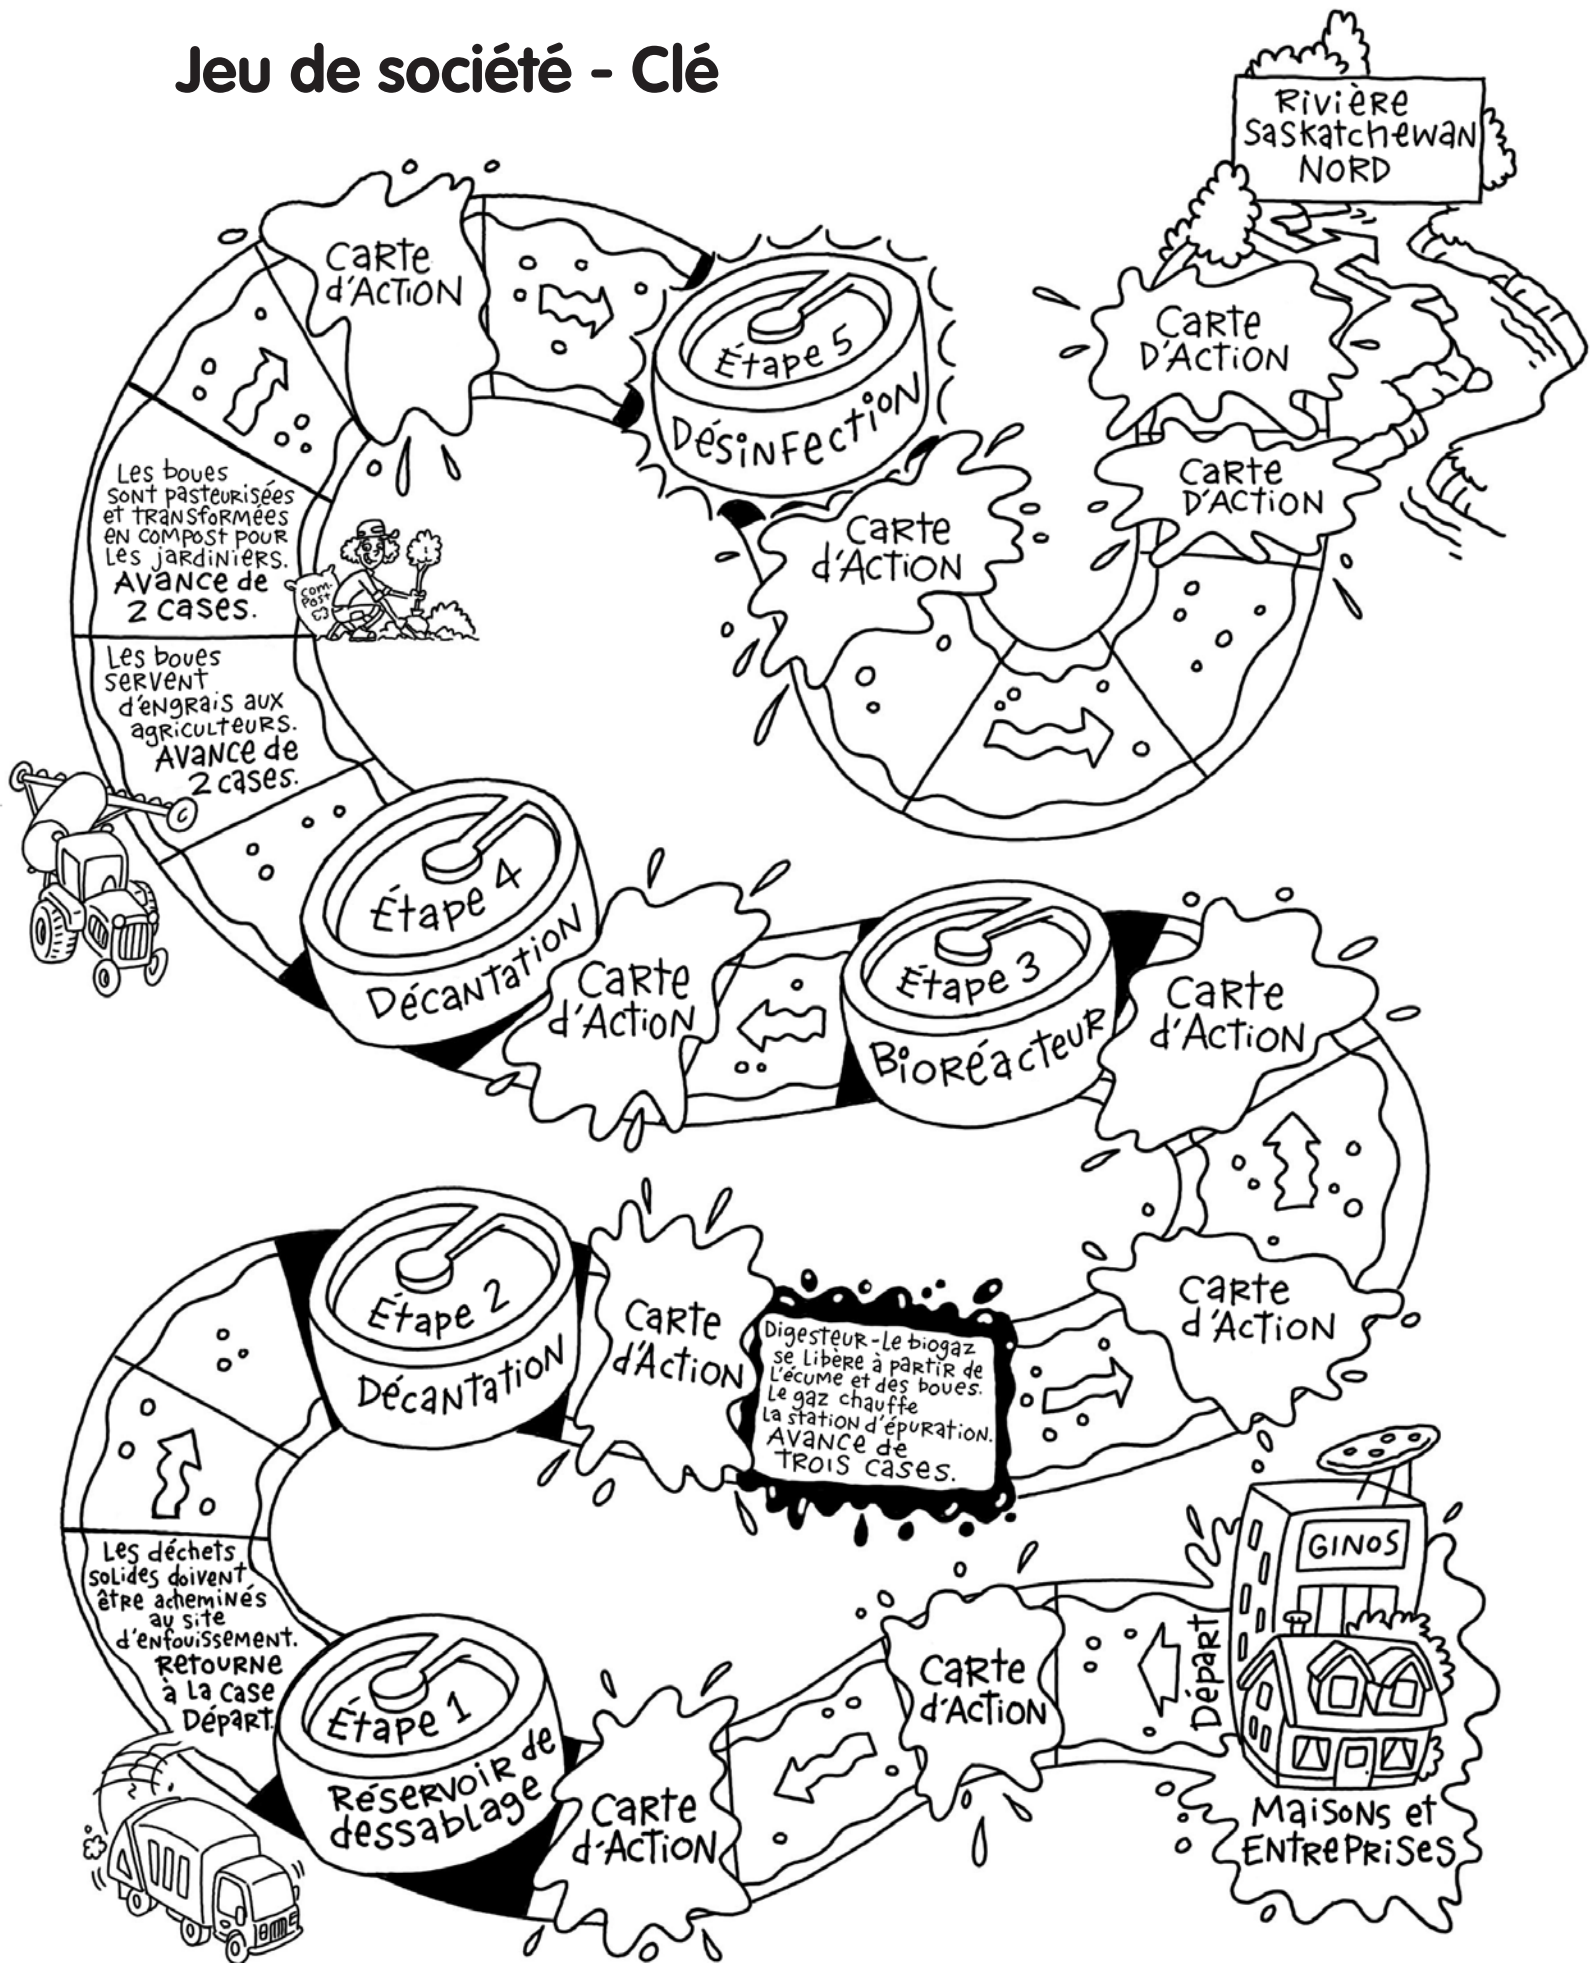 Jeu de société - Clé
Rivière
Saskatchewan
Nord
Carte
d'Action
Étape 5
Désinfection
Carte
D'Action
Carte
D'Action
Carte
d'Action
Les boues
sont pasteurisées
et transformées
en compost pour
les jardiniers.
Avance de
2 cases.
com-
post
Les boues
servent
d'engrais aux
agriculteurs.
Avance de
2 cases.
Étape 4
Décantation
Carte
d'Action
Étape 3
Bioréacteur
Carte
d'Action
Étape 2
Décantation
Carte
d'Action
Digesteur-Le biogaz
se libère à partir de
l'écume et des boues.
Le gaz chauffe
la station d'épuration.
Avance de
trois cases.
Carte
d'Action
GINOS
Les déchets
solides doivent
être acheminés
au site
d'enfouissement.
Retourne
à la case
Départ.
Étape 1
Réservoir de
dessablage
Carte
d'Action
Carte
d'Action
Départ
Maisons et
Entreprises